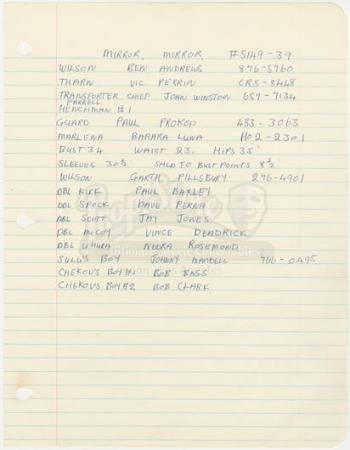 MIRROR, MIRROR, #5149-39
WILSON BEN ANDREWS 876-5760
THARN VIC PERRIN CR5-8448
TRANSPORTER CHIEF JOHN WINSTON 657-7134
FARRELL
HENCHMAN #1
GUARD PAUL PROKOP 483-3063
MARLENA BARBRA LUNA HO2-2301
BUST 34 WAIST 23. HIPS 35"
SLEEVES 30½ SHLD TO BUST POINTS 8½"
WILSON GARTH PILLSBURY 276-4901
DBL KIRK PAUL BAXLEY
DBL SPOCK DAVE PERNA
DBL SCOTT JAY JONES
DBL McCOY VINCE DEADRICK
DBL UHURA NEDRA ROSEMOND
SULU'S BOY JOHNNY MANDELL 766-0495
CHEKOV'S BOY #1 BOB BASS
CHEKOV'S BOY #2 BOB CLARK